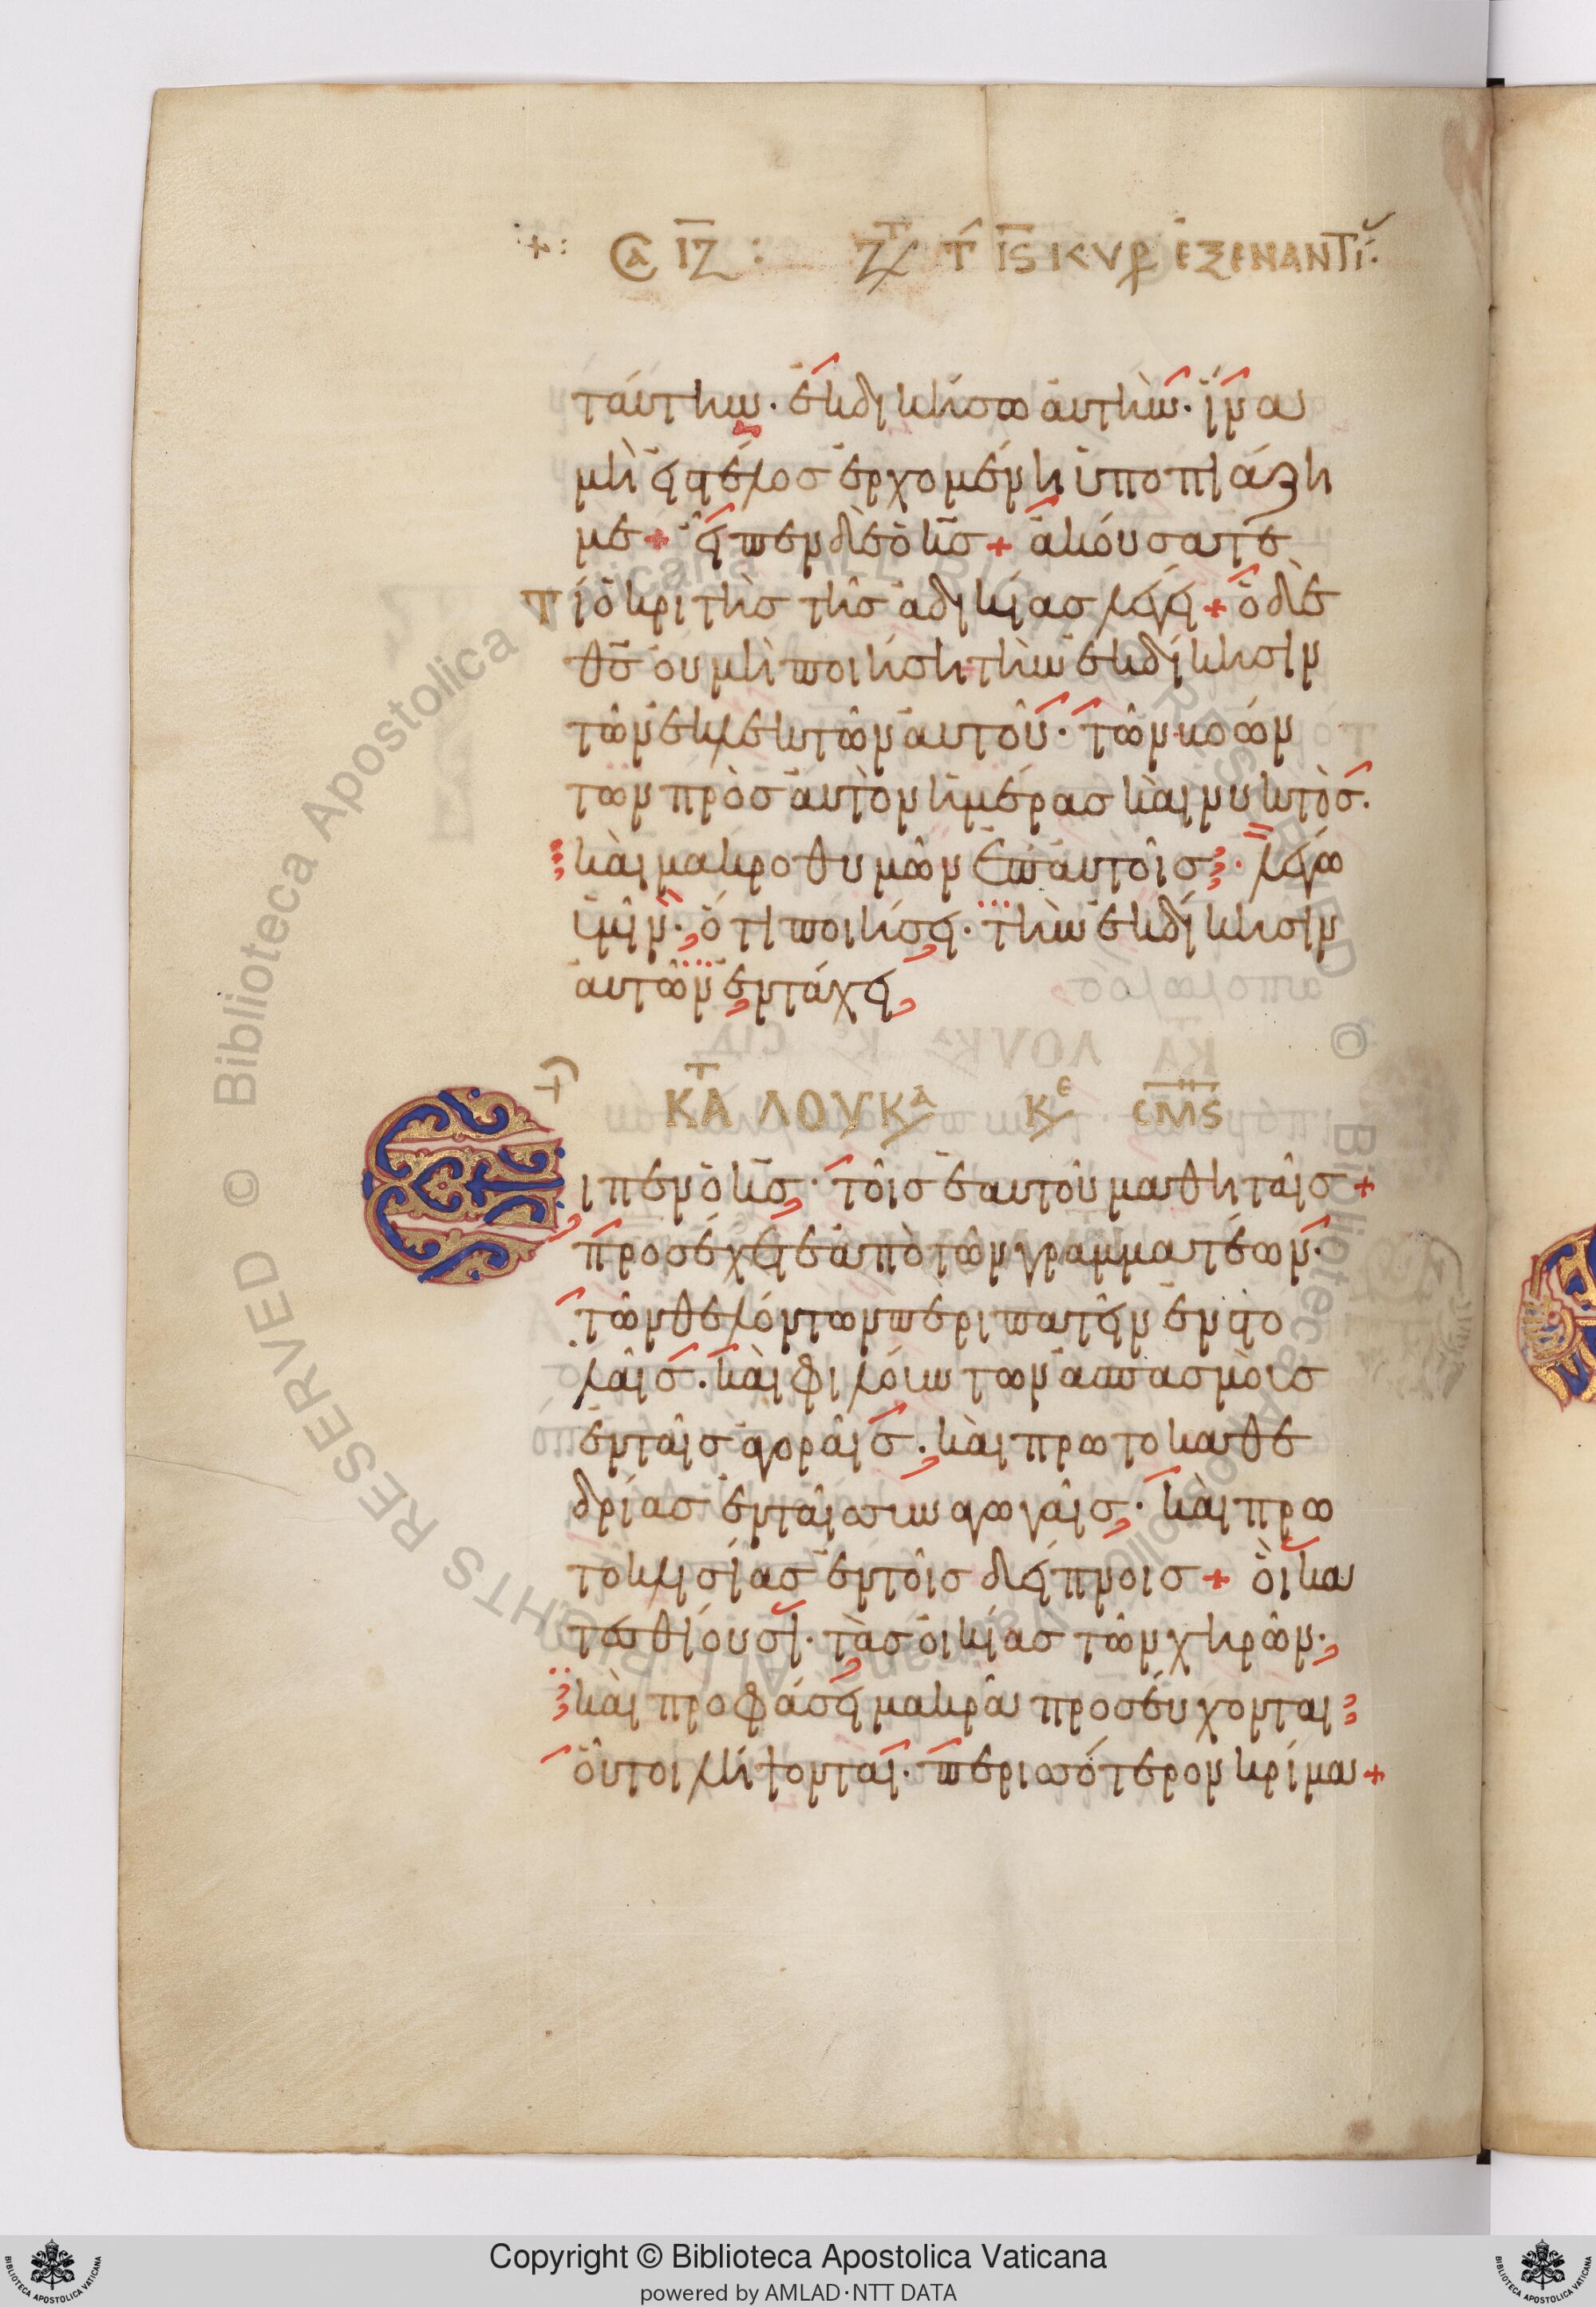 +: Σα ΙΖ : ΖΤ Τ ΙϚ ΚΥΡ ΕΞΕΝΑΝΤΙ:
ταύτην· ἐκδικήσω αὐτήν· ἵνα
μὴ εἰς τέλος ἐρχομένη ὑποπιάζη
με + εἶπεν δὲ ὁ κ̅ς̅ + ἀκούσατε
τί ὁ κριτὴς τῆς ἀδικίας λέγει + ὁ δὲ
θ̅ς̅ οὐ μὴ ποιήση τὴν ἐκδίκησιν
τῶν ἐκλεκτῶν αὐτοῦ· τῶν βοών
των πρὸς αὐτὸν ἡμέρας καὶ νυκτός·
καὶ μακροθυμῶν ἐπ' αὐτοῖς· λέγω
ὑμῖν· ὅτι ποιήσει· τὴν ἐκδίκησιν
αὐτῶν ἐν τάχει
ΚΑΤ ΛΟΥΚΑ Κε ϹΜϚ
Εἶπεν ὁ κ̅ς̅· τοῖς ἑαυτοῦ μαθηταῖς +
προσέχετε ἀπὸ τῶν γραμματέων·
τῶν θελόντων περιπατεῖν ἐν στο
λαῖς· καὶ φιλούντων ἀσπασμοὺς
ἐν ταῖς ἀγοραῖς· καὶ πρωτοκαθε
δρίας ἐν ταῖς συναγωγαῖς· καὶ πρω
τοκλισίας ἐν τοῖς δείπνοις + οἳ κα
τεσθίουσι· τὰς οἰκίας τῶν χηρῶν·
καὶ προφάσει μακρὰ προσεύχονται
οὗτοι λήψονται· περισσότερον κρίμα +
© Biblioteca Apostolica Vaticana ALL RIGHTS RESERVED
Copyright © Biblioteca Apostolica Vaticana
powered by AMLAD·NTT DATA
BIBLIOTECA APOSTOLICA VATICANA